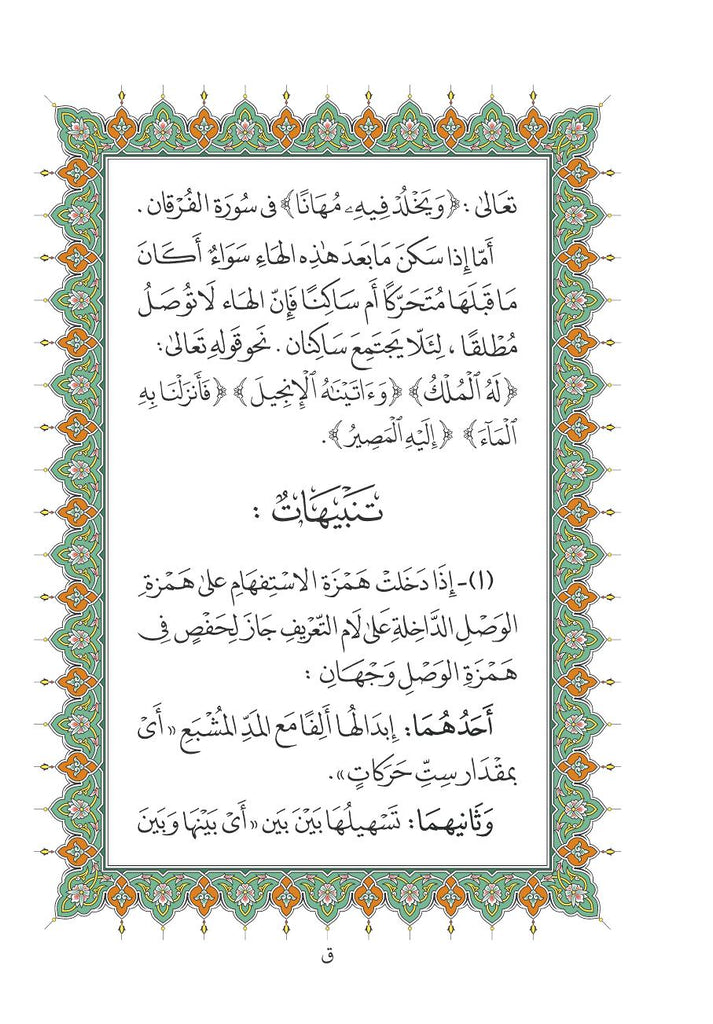 تعَالىٰ : ﴿وَيَخْلُدْ فِيهِۦ مُهَانًا﴾ فى سُورَة الفُرْقان .
أمّا إذا سَكنَ مَا بَعدَ هٰذِه الهَاءِ سَوَاءٌ أَكَانَ
مَا قَبلَهَا مُتَحَرِّكًا أم سَاكِنًا فَإِنّ الهَاء لَا تُوصَلُ
مُطْلقًا ، لِئَلّا يَجتَمِعَ سَاكِنان . نَحو قَولهِ تعَالىٰ :
﴿لَهُ ٱلْمُلْكُ﴾ ﴿وَءَاتَيْنَٰهُ ٱلْإِنجِيلَ﴾ ﴿فَأَنزَلْنَا بِهِ
ٱلْمَآءَ﴾ ﴿إِلَيْهِ ٱلْمَصِيرُ﴾.
تَنبيْهَاتٌ :
(١)- إِذَا دَخَلَتْ هَمْزَة الاسْتِفهَامِ علىٰ هَمْزةِ
الوَصْلِ الدَّاخِلةِ عَلىٰ لَام التّعْرِيفِ جَازَ لِحَفْصٍ فِى
هَمْزَةِ الوَصْلِ وَجْهَانِ :
أَحَدُهُمَا: إبدَالُها أَلِفًا مَع المَدِّ المُشْبَعِ «أَىْ
بمقْدَار سِتِّ حَرَكاتٍ».
وَثَانِيهمَا: تَسْهيلُهَا بَيْنَ بَين «أَىْ بَيْنَها وَبَينَ
ق